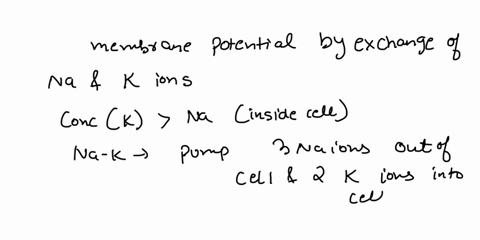 membrane potential by exchange of
Na & K ions
Conc (K) > Na (inside cell)
Na-K → pump 3 Na ions out of
cell & 2 K ions into
cell